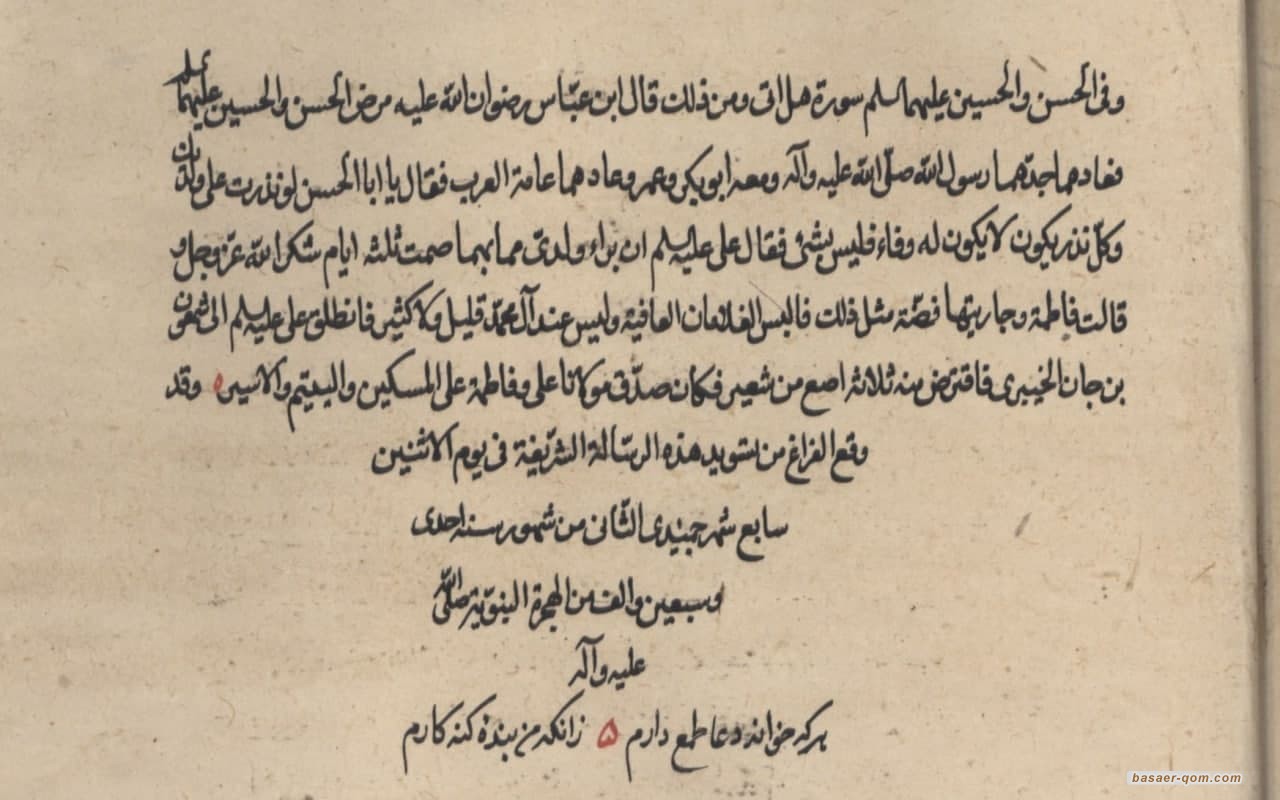 وفى الحسن والحسين عليهما السلم سورة هل اتى ومن ذلك قال ابن عبّاس رضوان الله عليه مرض الحسن والحسين عليهما السلم
فعادهما جدّهما رسول الله صلّى الله عليه وآله ومعه ابوبكر وعمر وعادهما عامة العرب فقال يا ابا الحسن لو نذرت على ولديك
وكلّ نذر يكون لا يكون له وفاء فليس بشئ فقال على عليه السلم ان براء ولدىّ مما بهما صمت ثلثه ايام شكر الله عزّ وجل و
قالت فاطمة وجاريتها فضّة مثل ذلك فالبس الغلامان العافيه وليس عند آل محمّد قليل ولا كثير فانطلق على عليه السلم الى شمعون
بن حان الخيبرى فاقترض منه ثلاثه اصع من شعير فكان صدّق مولانا على وفاطمة على المسكين واليتيم والاسير ه وقد
وقع الفراغ من تسويد هذه الرسّالة الشريفة فى يوم الاثنين
سابع شهر جميدى الثانى من شهور سنه احدى
وسبعين والف من الهجرة النبويّة صلى الله
عليه وآله
هركه خواند دعا طمع دارم ۵ زانكه من بنده كنه كارم
basaer-qom.com